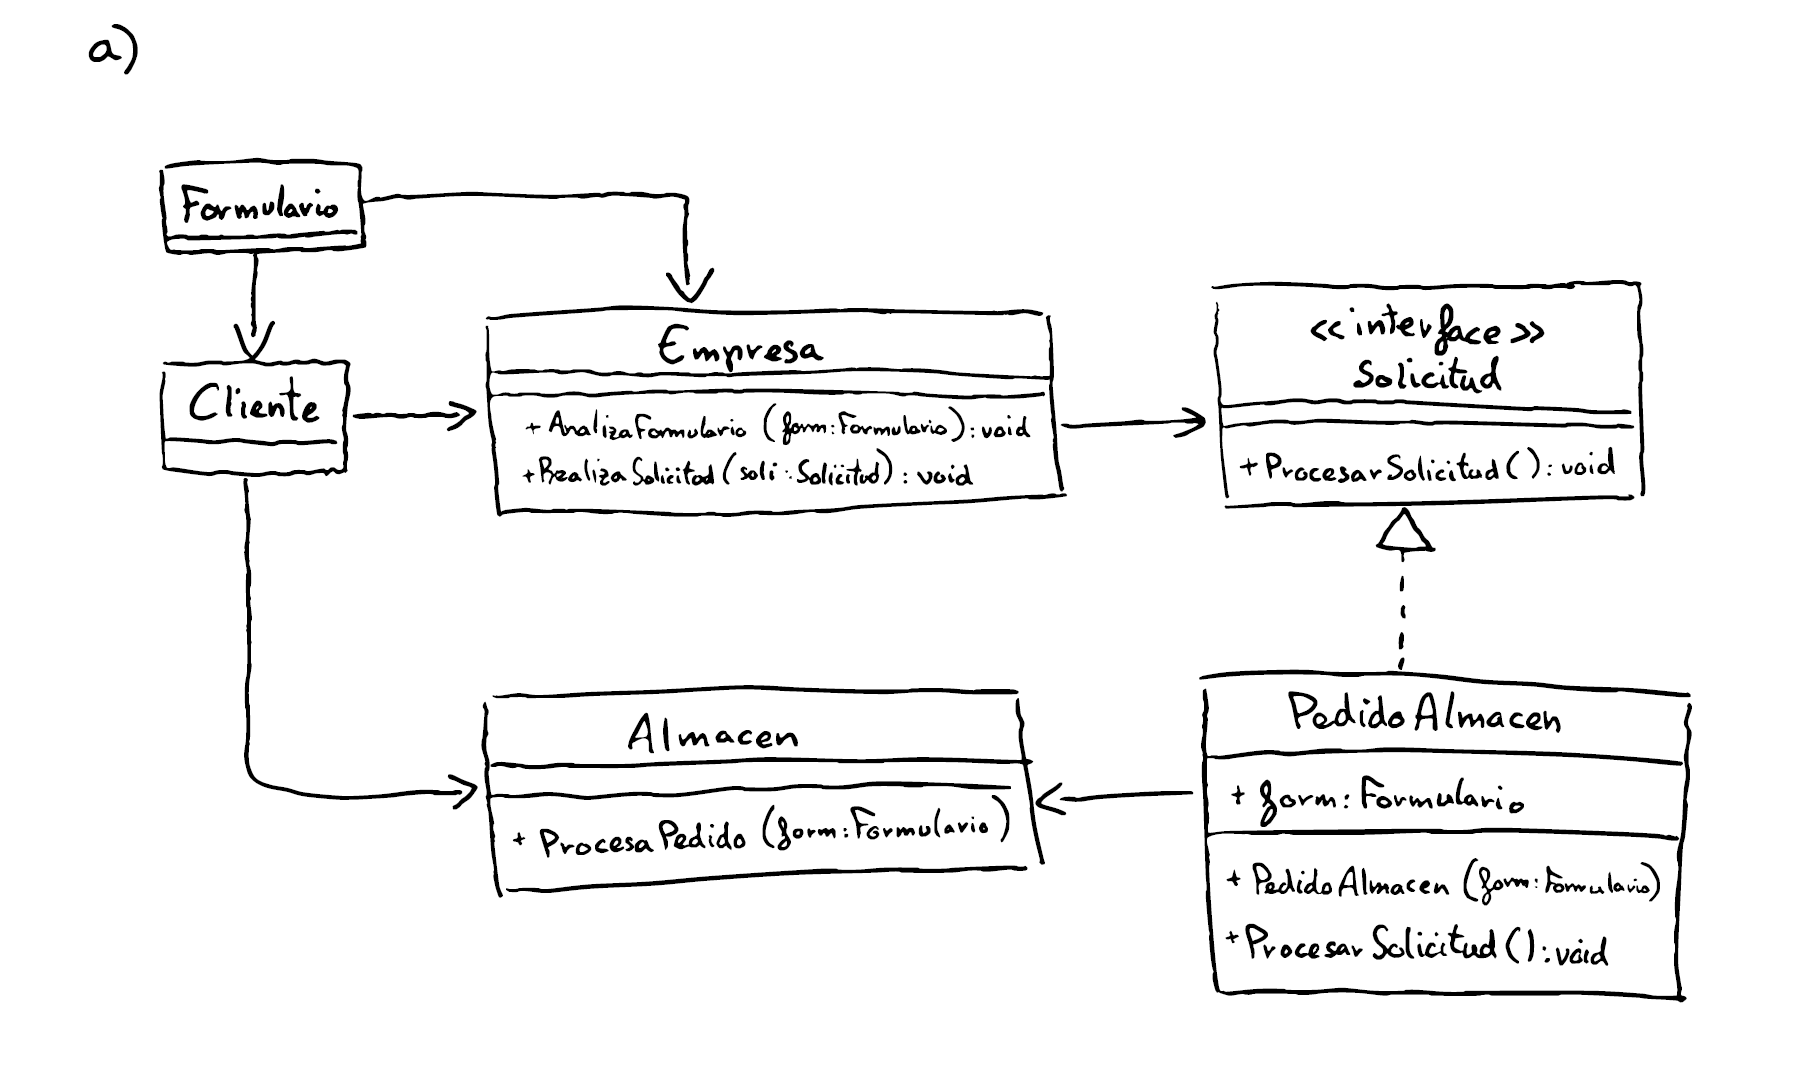 a)
Formulario
Cliente
Empresa
+ AnalizaFormulario (form: Formulario): void
+ RealizaSolicitud (soli: Solicitud): void
<<interface>>
Solicitud
+ ProcesarSolicitud(): void
Almacen
+ ProcesaPedido (form: Formulario)
PedidoAlmacen
+ form: Formulario
+ PedidoAlmacen (form: Formulario)
+ ProcesarSolicitud(): void